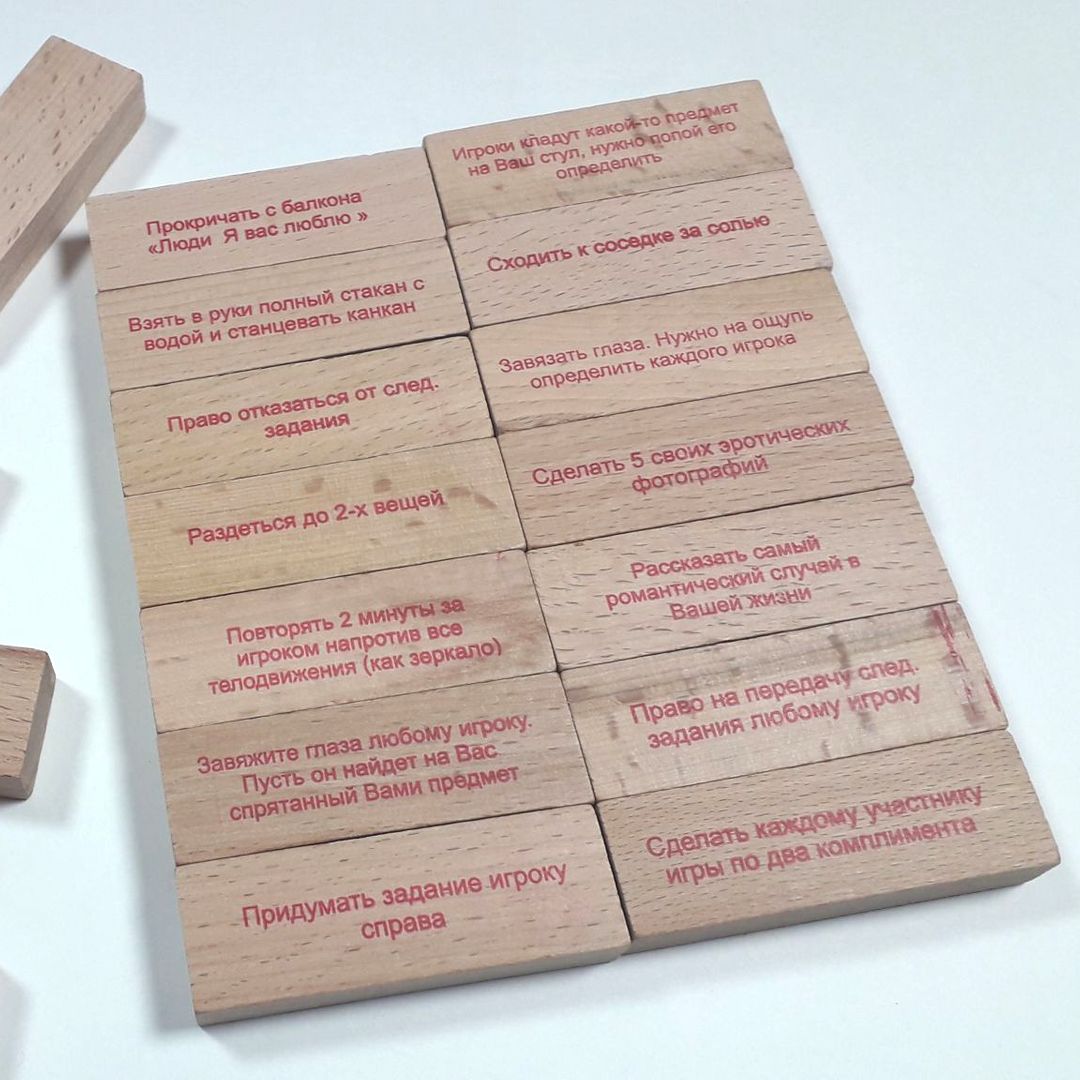 Прокричать с балкона
«Люди Я вас люблю »
Взять в руки полный стакан с
водой и станцевать канкан
Право отказаться от след.
задания
Раздеться до 2-х вещей
Повторять 2 минуты за
игроком напротив все
телодвижения (как зеркало)
Завяжите глаза любому игроку.
Пусть он найдет на Вас
спрятанный Вами предмет
Придумать задание игроку
справа
Игроки кладут какой-то предмет
на Ваш стул, нужно попой его
определить
Сходить к соседке за солью
Завязать глаза. Нужно на ощупь
определить каждого игрока
Сделать 5 своих эротических
фотографий
Рассказать самый
романтический случай в
Вашей жизни
Право на передачу след.
задания любому игроку
Сделать каждому участнику
игры по два комплимента